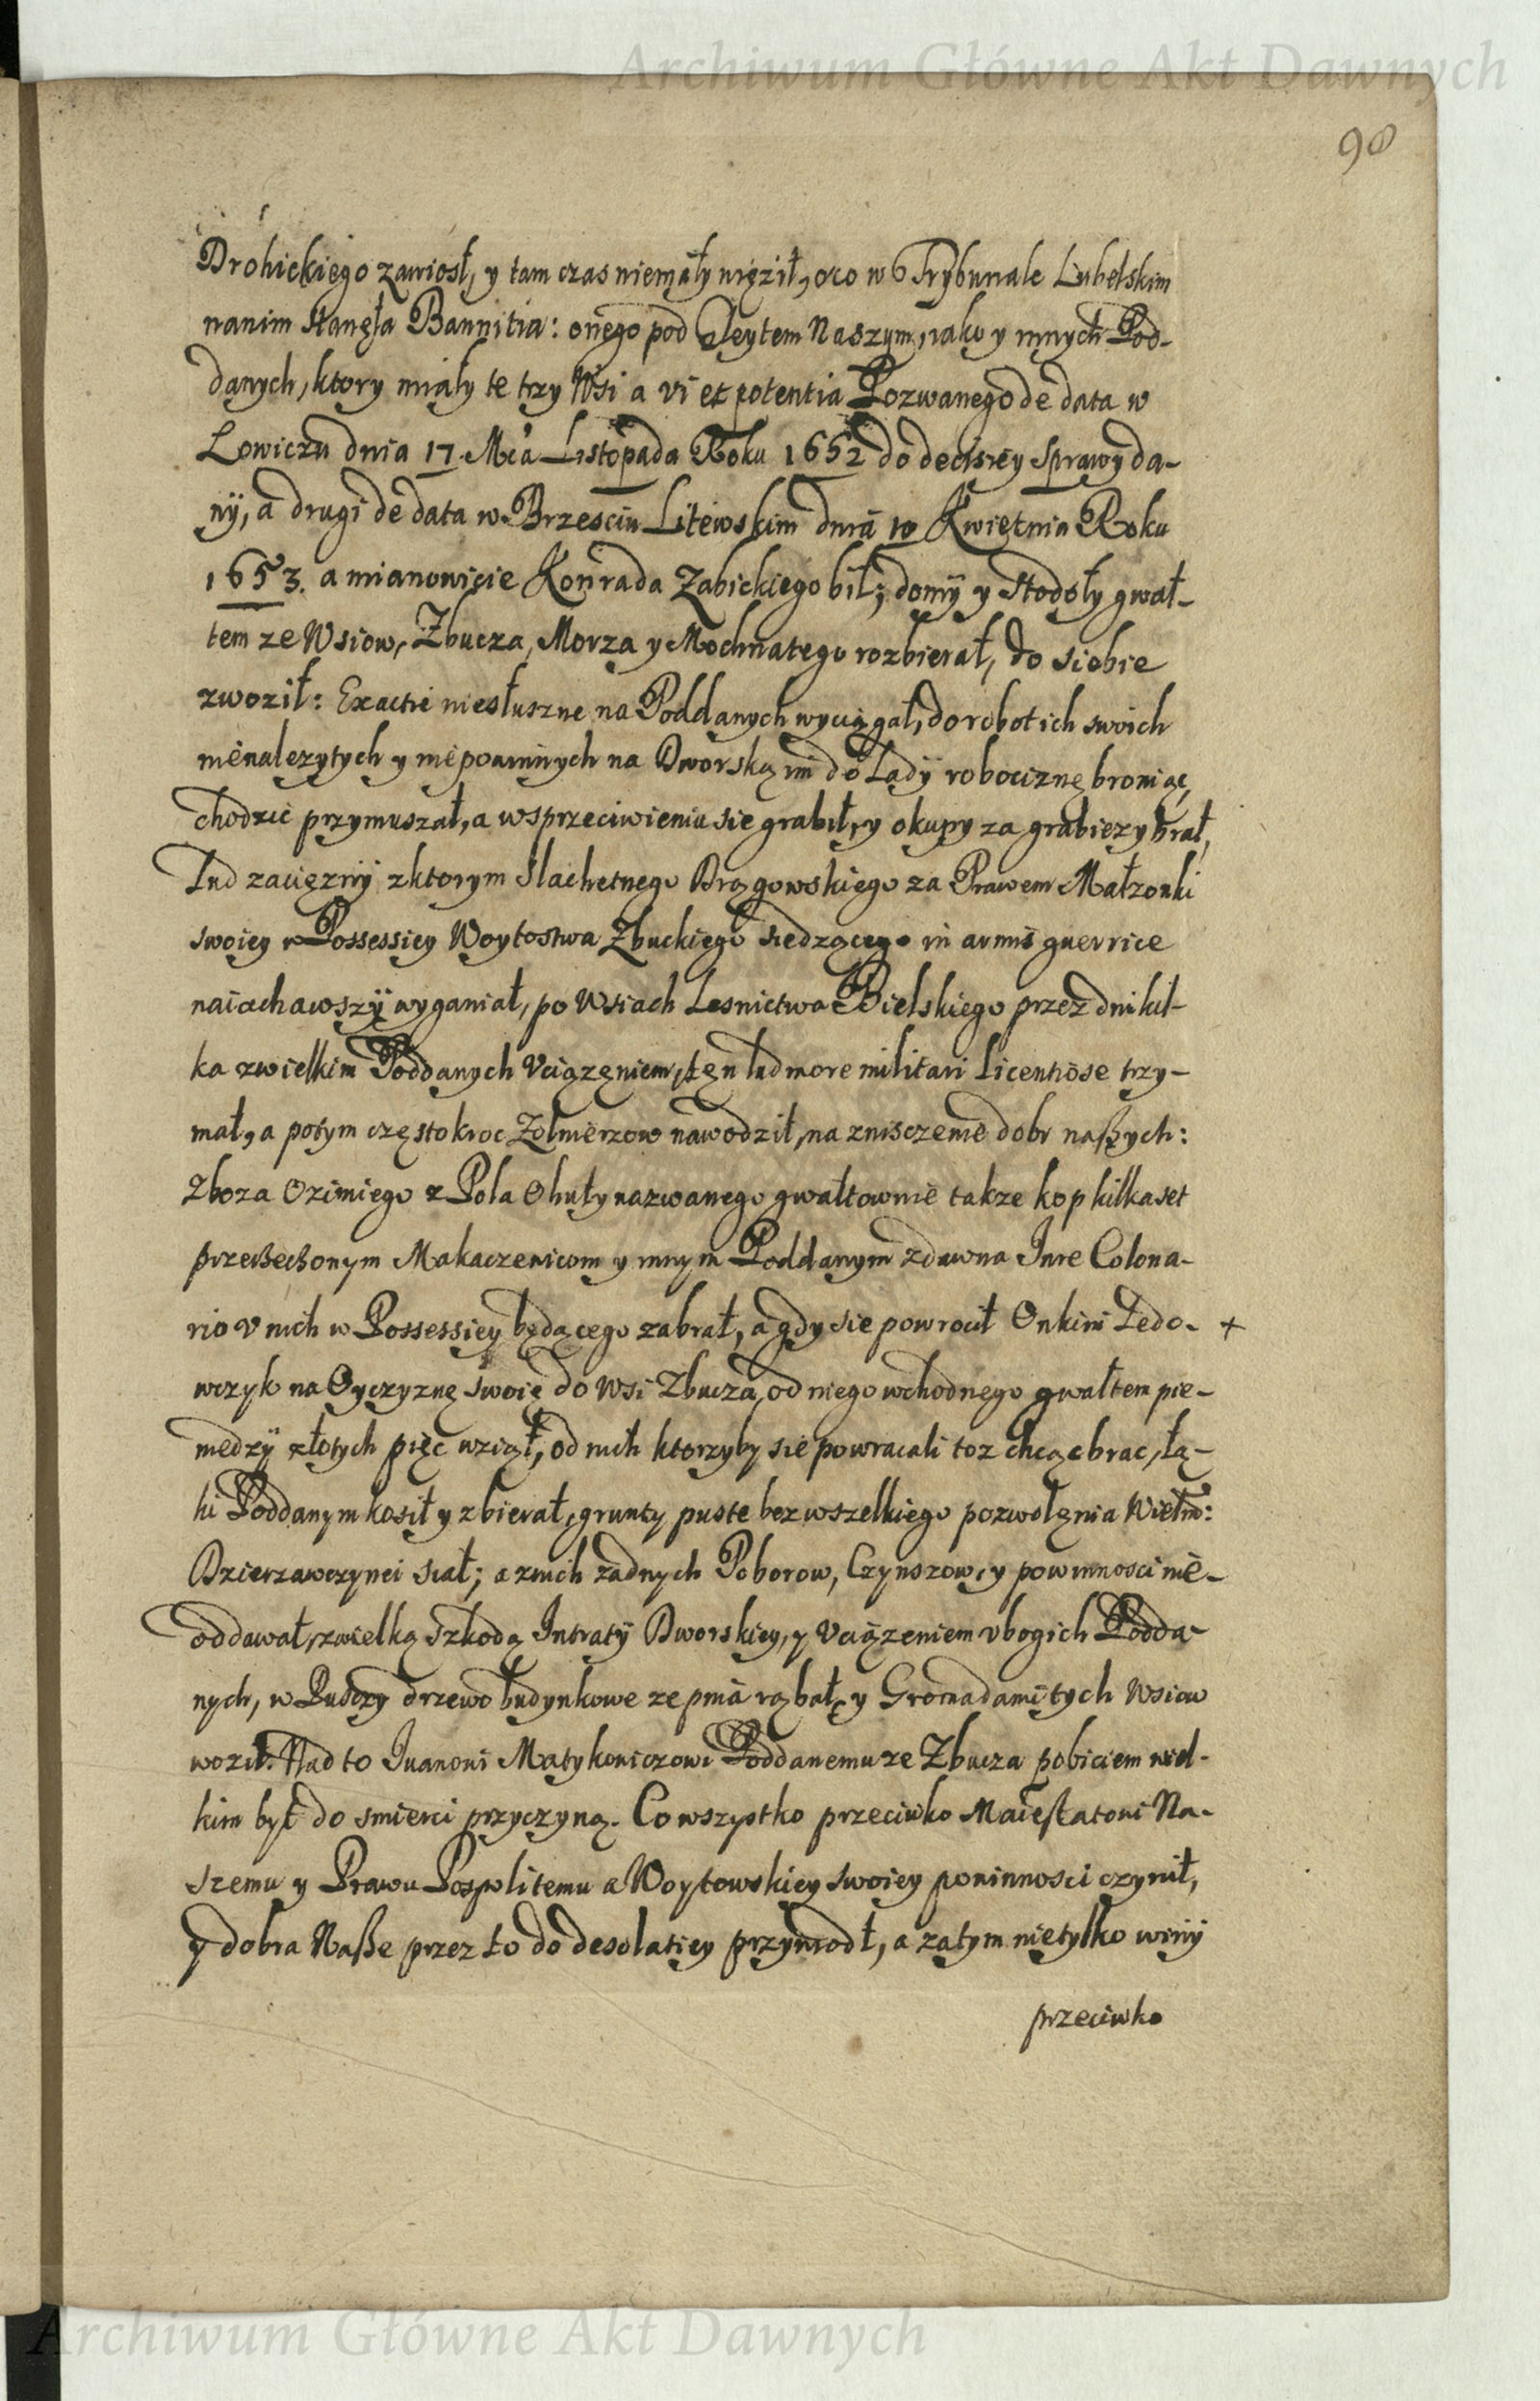 Archiwum Główne Akt Dawnych
98
Drohickiego zawiosł, y tam czas niemały więził, oco w Trybunale Lubelskim
nanim stanęła Bannitia: onego pod Gleytem Naszym, iako y innych Pod-
danych, ktory miały te trzy Wsi a vi et potentia Pozwanego de data w
Lowiczu dnia 17. Mca Listopada Roku 1652 do decisiey sprawy da-
ny, a drugi de data w Brzesciu Litewskim dnia 10 Kwietnia Roku
1653. a mianowicie Konrada Zabickiego bił; domy y stodoły gwał-
tem ze Wsiow, Zbucza, Morza y Mochnatego rozbierał, do siebie
zwoził: Exactie niesłuszne na Poddanych wyciągał, do robot ich swoich
nienalezytych y niepowinnych na Dworską im do Lady robociznę broniąc,
chodzic przymuszał, a w sprzeciwieniu sie grabił, y okupy za grabiezy brał,
Lud zaciężny z ktorym Slachetnego Drągowskiego za Prawem Małzonki
swoiey w Possessiey Woytostwa Zbuckiego siedzącego in armis guerrice
naiachawszy wyganiał, po Wsiach Lesnictwa Bielskiego przez dni kil-
ka z wielkim Poddanych Uciązęniem, tęn lud more militari licentiose trzy-
mał, a potym częstokroc Zołnierzow nawodził, na zniszczenie dobr naszych:
Zboza Ozimiego z Pola Ohuły nazwanego gwałtownie takze kop kilkaset
przeszechonym Makaczenicom y innym Poddanym zdawna Iure Colona-
rio u nich w Possessiey będącego zabrał, a gdy sie powrocił Onkim Ledo- +
wczyk na Oyczyznę swoię do Wsi Zbucza, od niego wchodnego gwałtem pie-
niedzy złotych pięc wziął, od nich ktorzyby sie powracali toz chcąc brac, łą-
ki Poddanym kosił y zbierał, grunty puste bez wszelkiego pozwolęnia Wielm:
Dzierzawczynei siał; a z nich żadnych Poborow, Czynszow, y powinnosci nie-
oddawał, z wielką szkodą Intraty Dworskiey, y Uciązeniem ubogich Podda-
nych, w Pusczy drzewo budynkowe ze pnia rąbał, y Gromadami tych Wsiow
woził. Nad to Iwanowi Matykowiczowi Poddanemu ze Zbucza pobiciem wiel-
kim był do smierci przyczyną. Co wszystko przeciwko Maiestatowi Na-
szemu y Prawu Pospolitemu a Woytowskiey swoiey powinnosci czynił,
y dobra Nasze przez to do desolatiey przywiodł, a zatym nietylko winy
przeciwko
Archiwum Główne Akt Dawnych